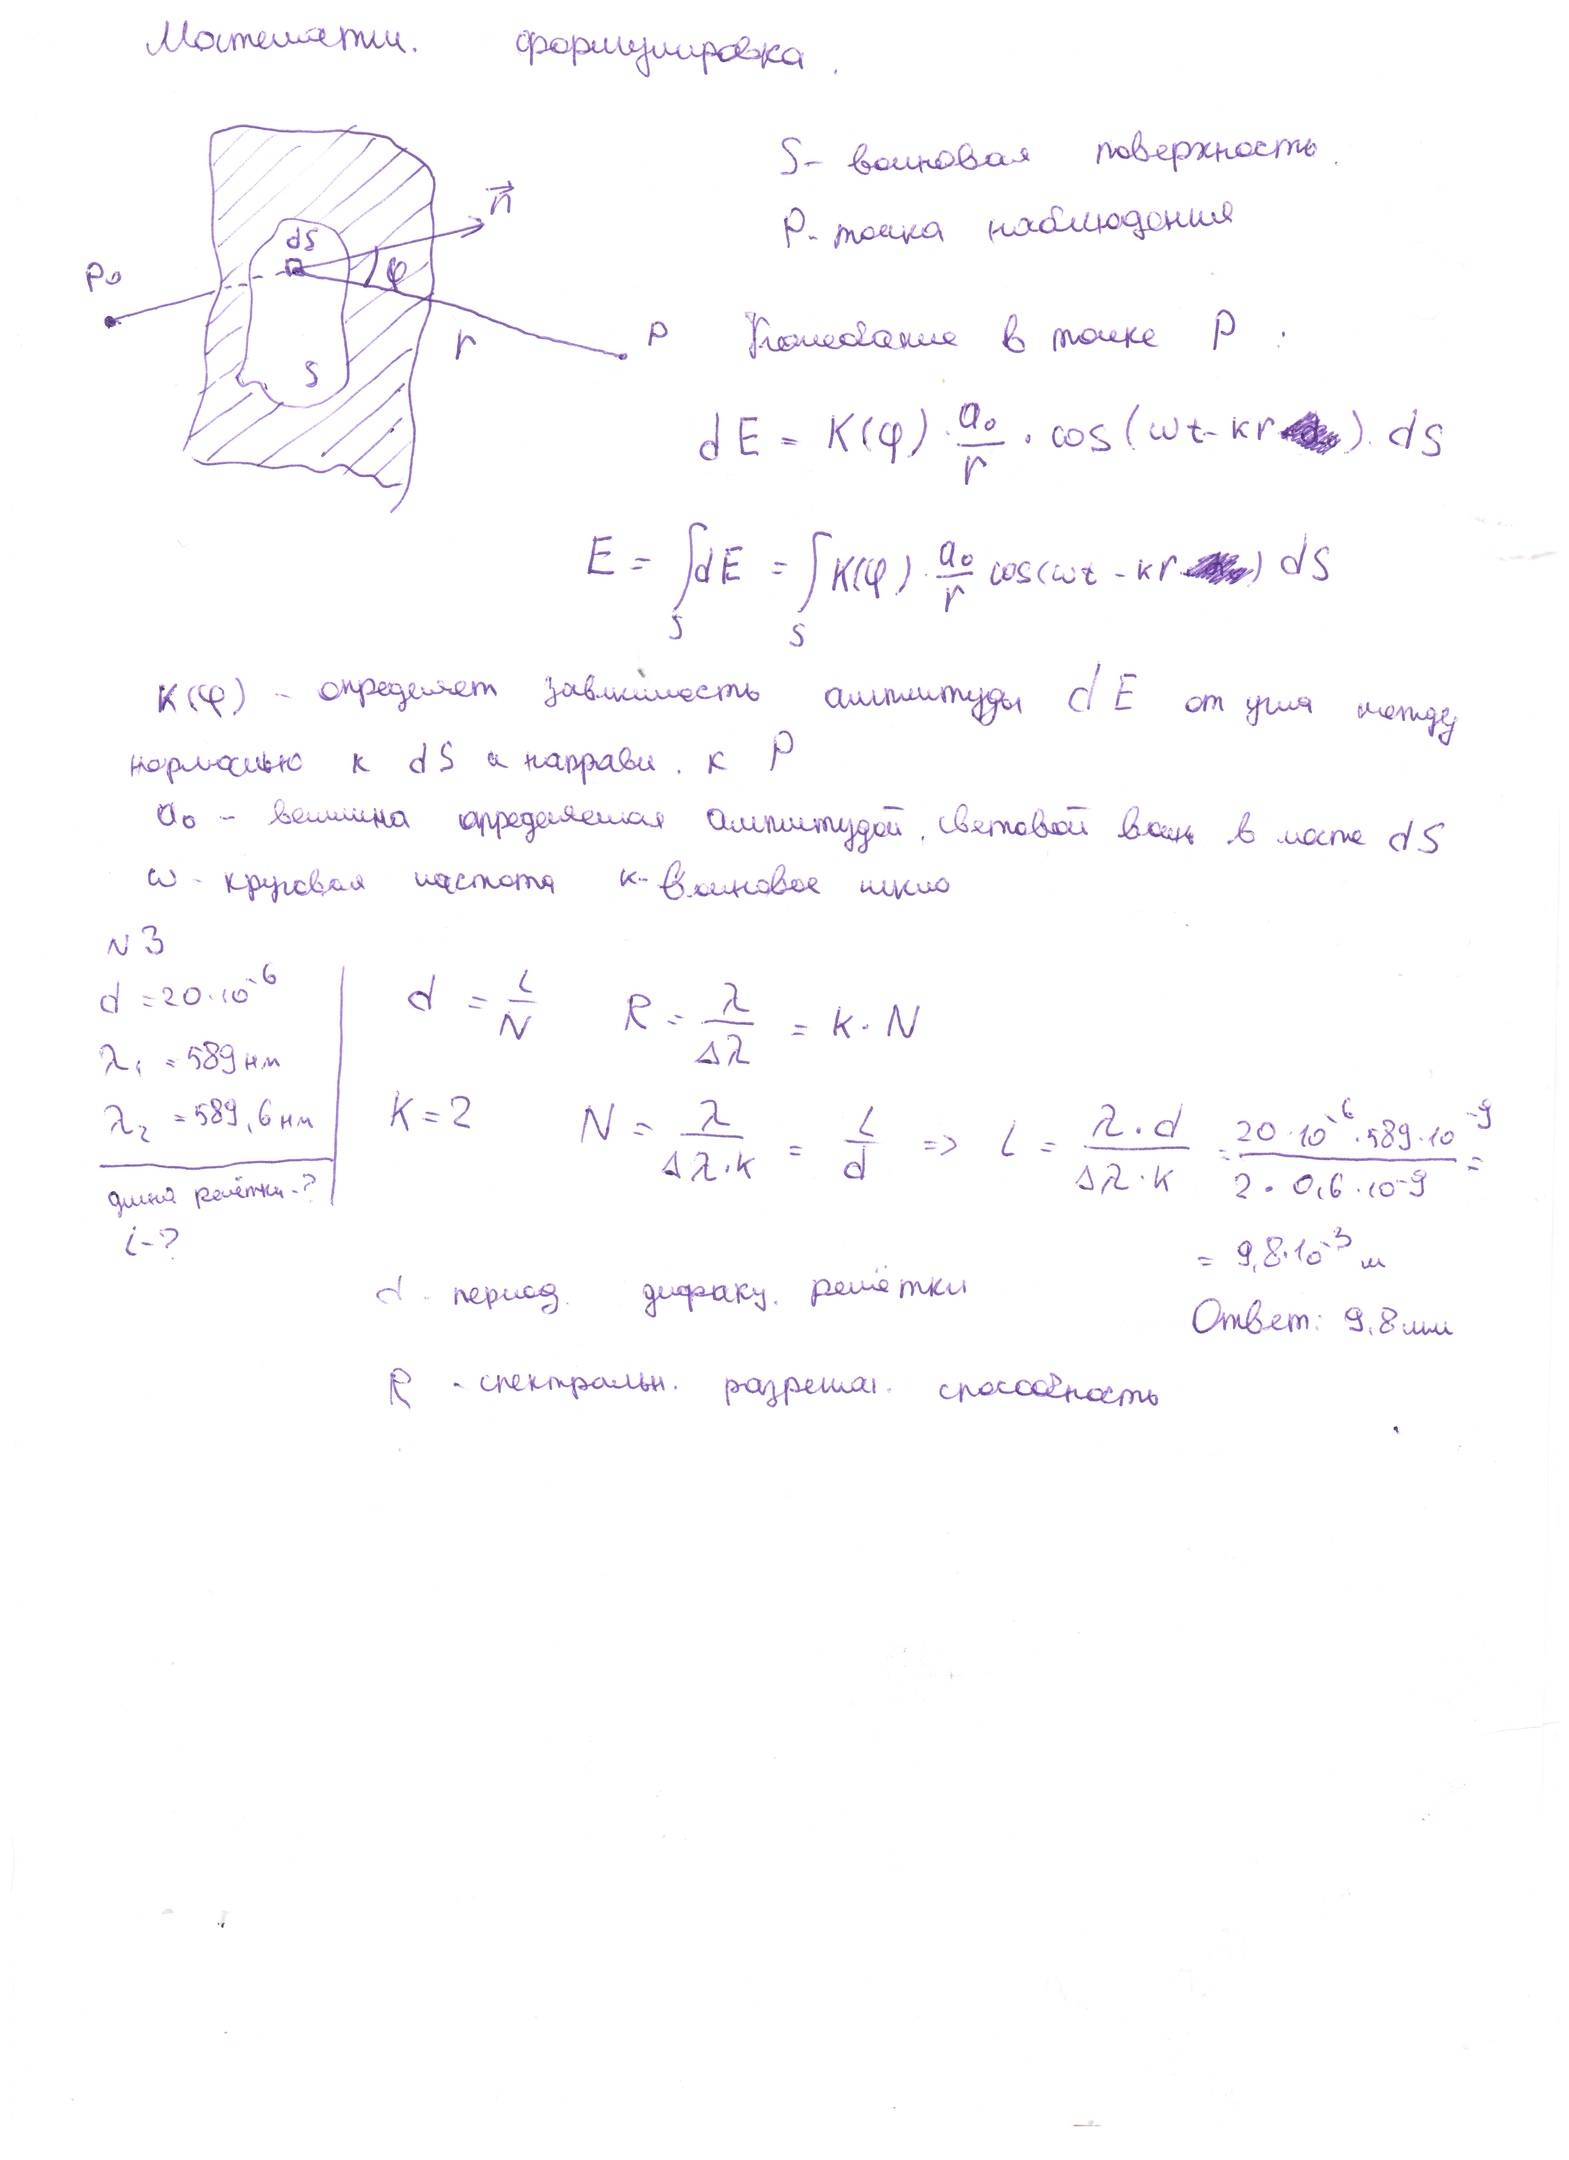 Математич. формулировка.
S - волновая поверхность.
P - точка наблюдения
dS
n
φ
P₀
r
P
S
Колебание в точке P :
dE = K(φ) · a₀/r · cos(ωt - kr) · dS
E = ∫_S dE = ∫_S K(φ) · a₀/r cos(ωt - kr) dS
K(φ) - определяет зависимость амплитуды dE от угла между
нормалью к dS и направл. к P
a₀ - величина определяемая амплитудой, световой волн в месте dS
ω - круговая частота k - волновое число
N 3
d = 20·10⁻⁶
λ₁ = 589 нм
λ₂ = 589,6 нм
длина решётки - ?
L - ?
d = L/N R = λ/Δλ = k · N
K = 2 N = λ/(Δλ·k) = L/d => L = λ·d/(Δλ·k) = 20·10⁻⁶·589·10⁻⁹/(2·0,6·10⁻⁹) =
= 9,8·10⁻³ м
Ответ: 9,8 мм
d - период. дифракц. решётки
R - спектральн. разрешат. способность